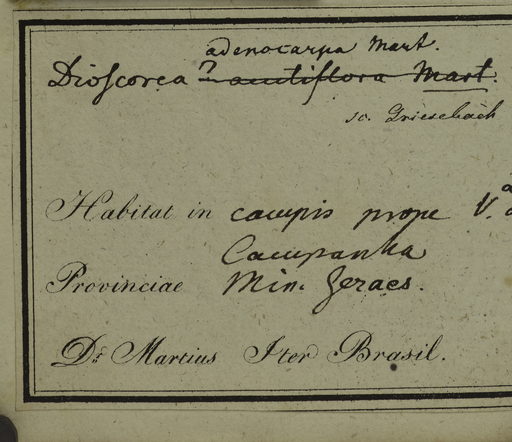 adenocarpa Mart.
Dioscorea ? Mart.
sc. Griesebach
Habitat in campis prope V.
Campanha
Provinciae Min. Geraes.
Dr. Martius Iter Brasil.